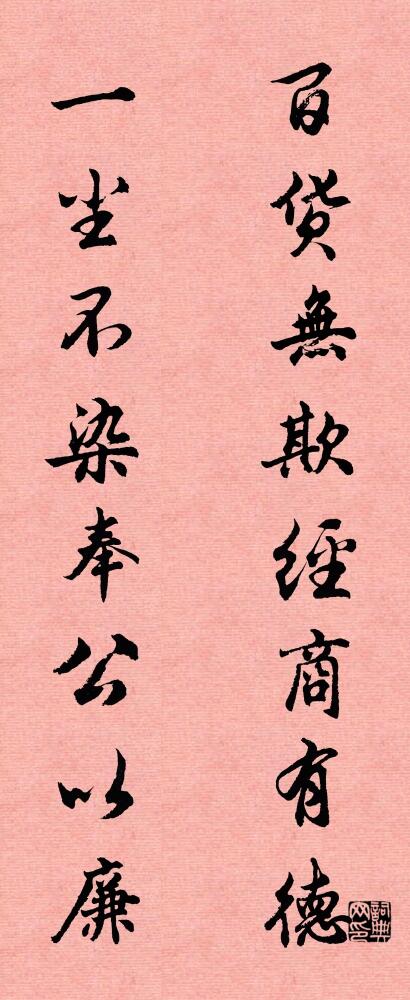 百貨無欺經商有德
一尘不染奉公以廉
詞典网印